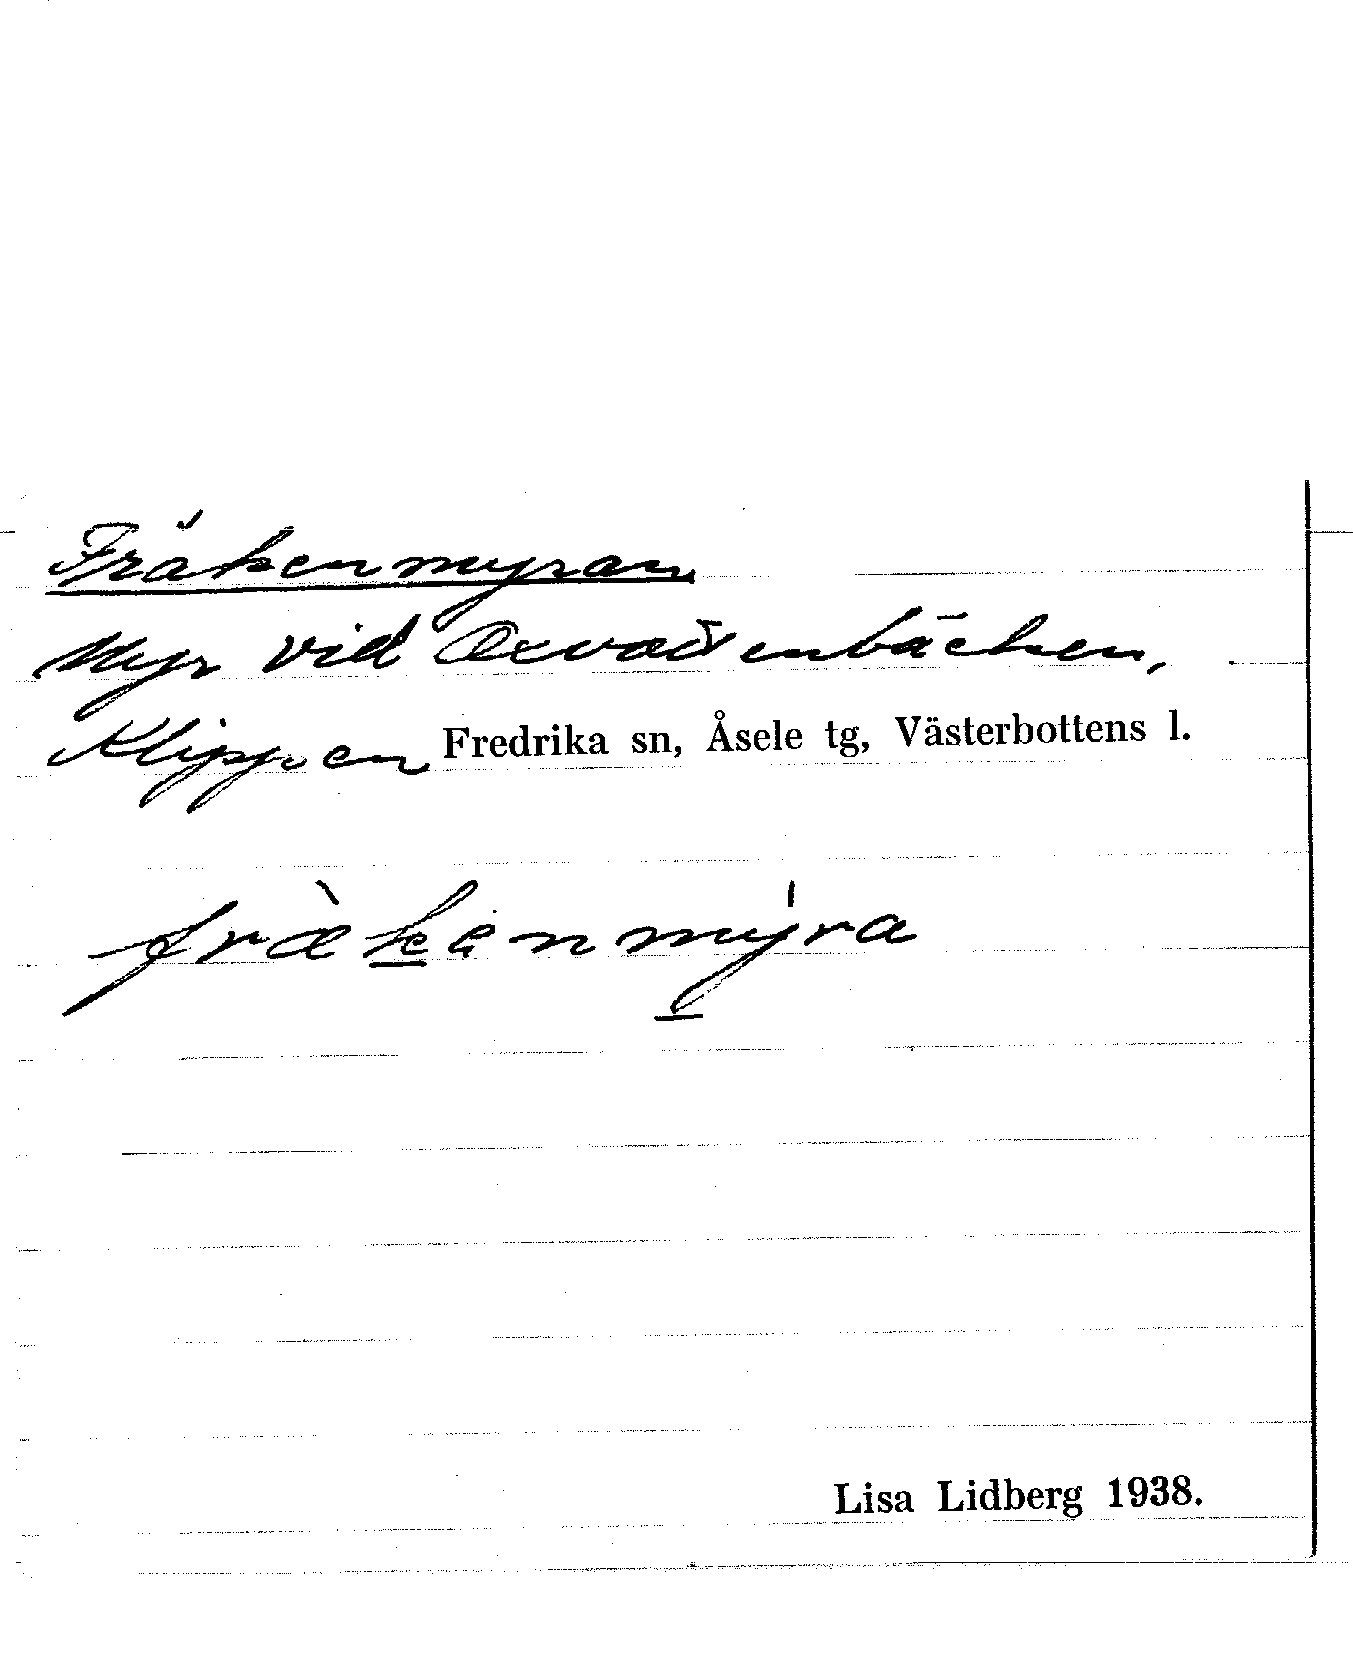 Fräkenmyran
Myr vid Oxvadsenbäcken,
Klippen Fredrika sn, Åsele tg, Västerbottens l.
fræ̀kenmýra
Lisa Lidberg 1938.